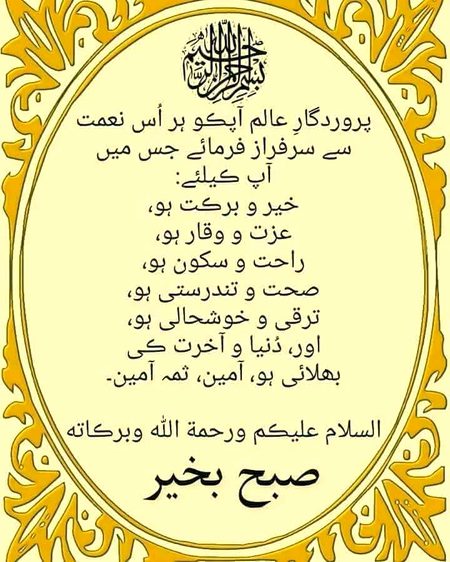 بسم الله الرحمن الرحيم
پروردگارِ عالم آپکو ہر اُس نعمت
سے سرفراز فرمائے جس میں
آپ کیلئے:
خیر و برکت ہو،
عزت و وقار ہو،
راحت و سکون ہو،
صحت و تندرستی ہو،
ترقی و خوشحالی ہو،
اور، دُنیا و آخرت کی
بھلائی ہو، آمین، ثمہ آمین۔
السلام علیکم ورحمة الله وبرکاته
صبح بخیر